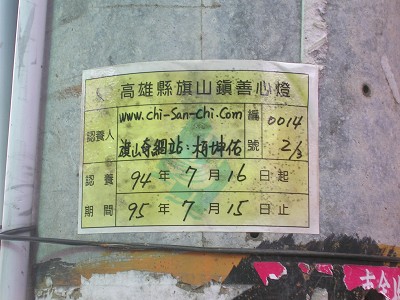 高雄縣旗山鎮善心燈
認養人 www.chi-San-Chi.Com 編號 0014
旗山奇網站:柯坤佑 2/3
認養 94年7月16日起
期間 95年7月15日止